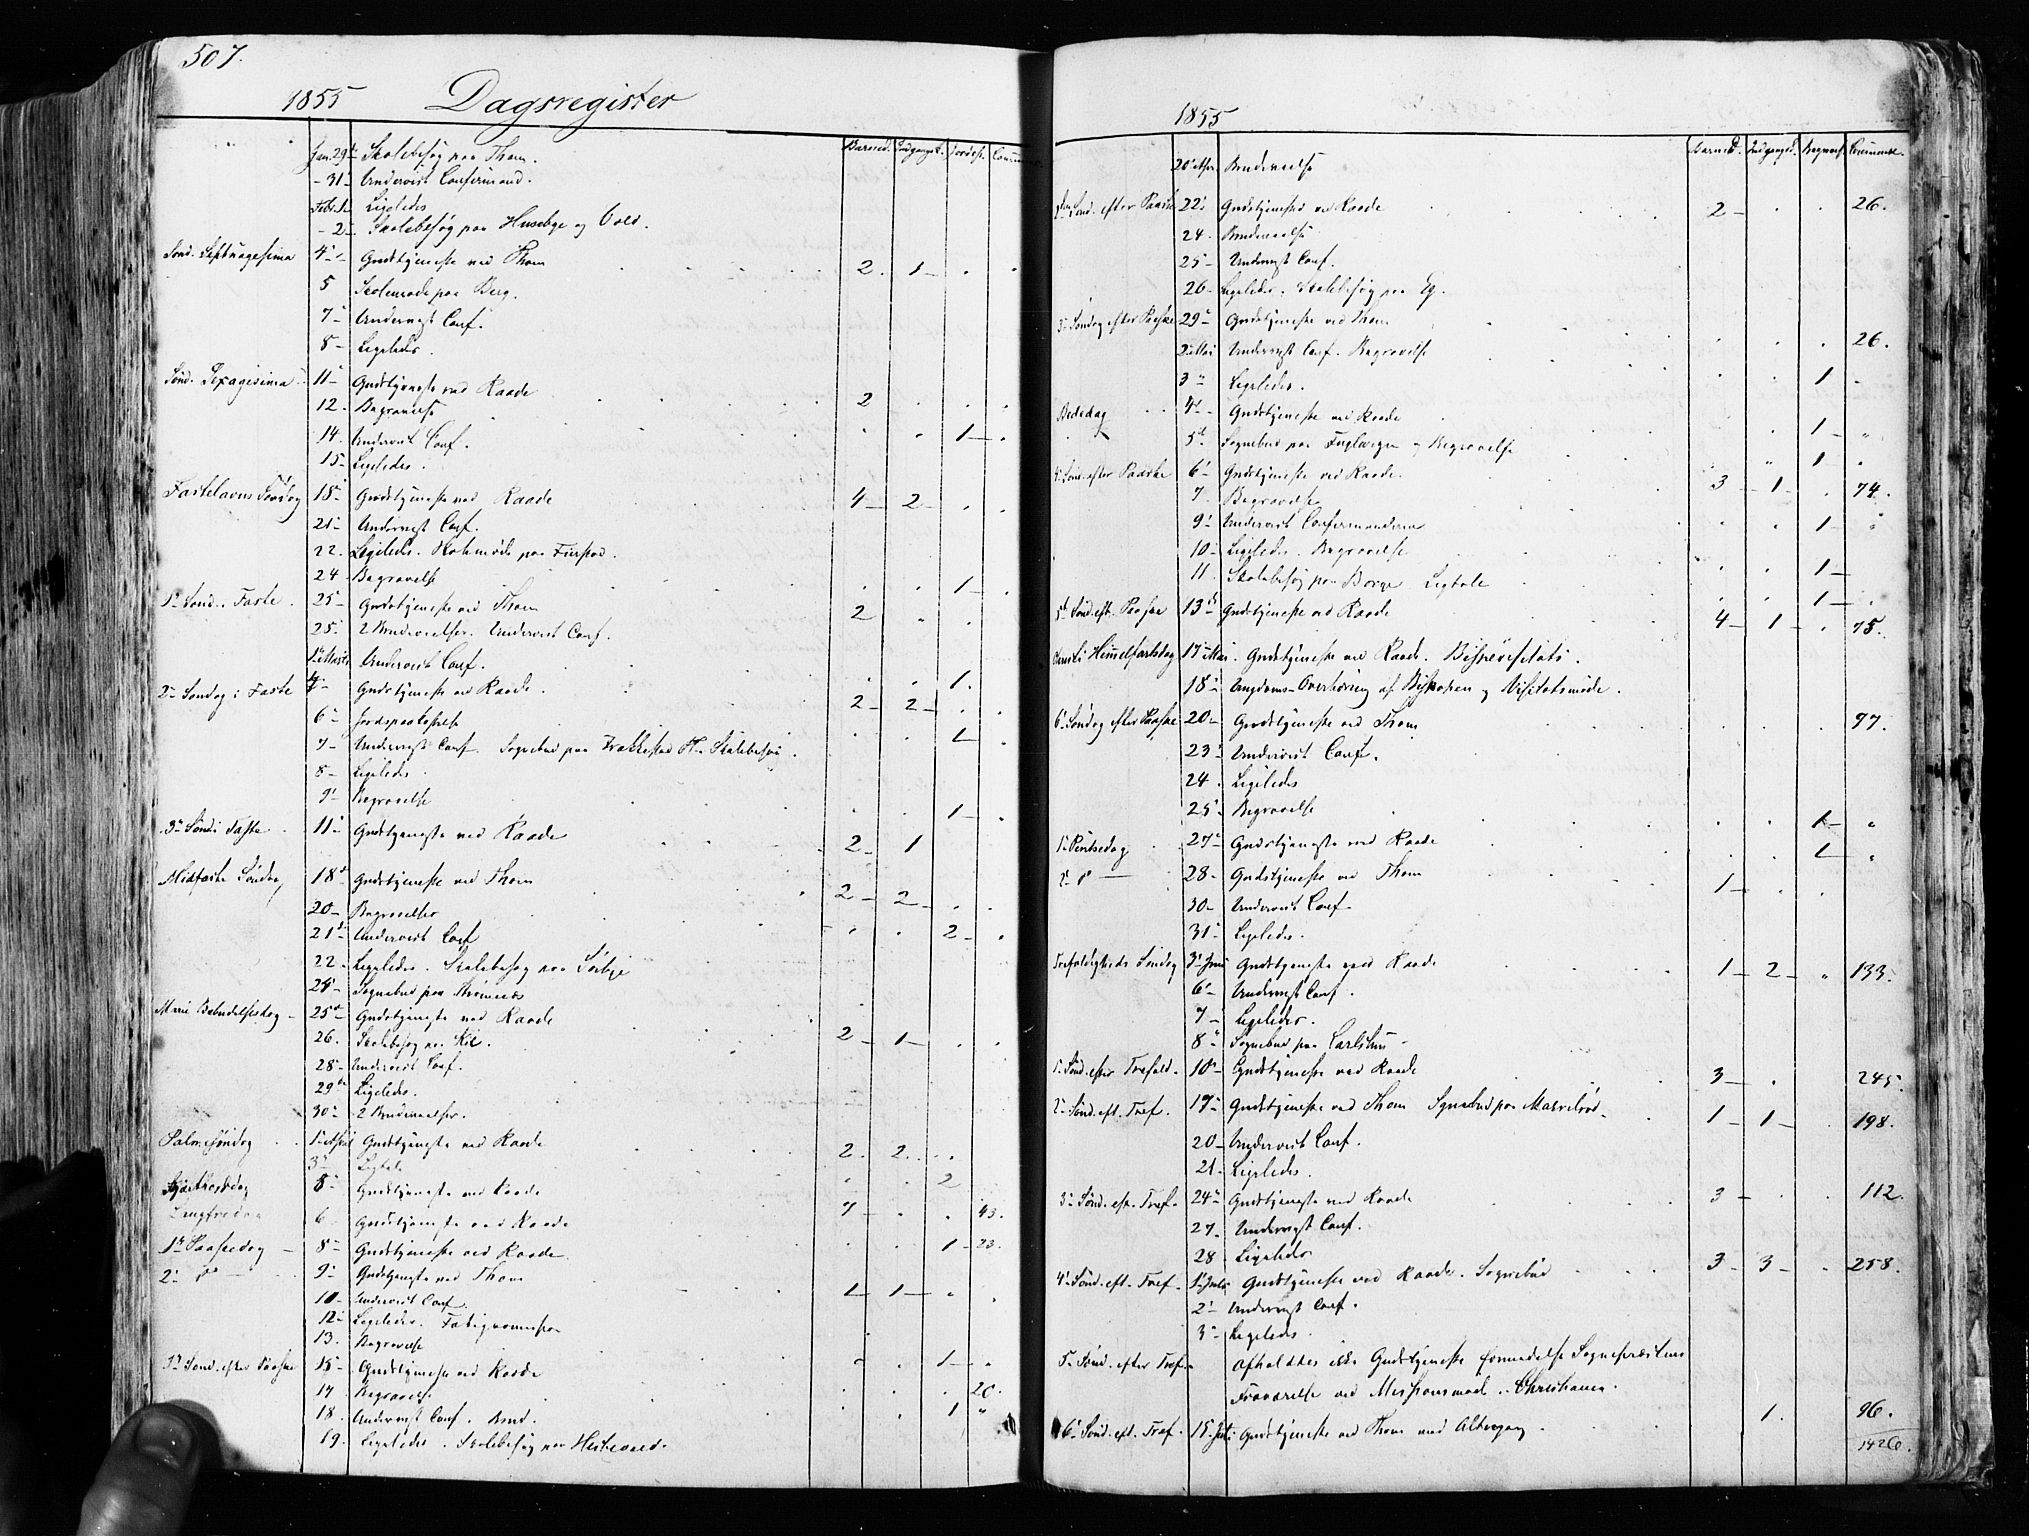 507.
1855 Dagsregister
Barned. Indgangsk. Jordsf. Commun.
Jan. 29 Skolebesøg paa Thom.
- 31 Underviist Confirmand.
Febr. 1 Ligeledes
- 2 Skolebesøg paa Husebye og Vold.
Sønd. Septuagesima 4 Gudstjeneste ved Thom 2. 1
5 Skolemøde paa Berg.
7 Underviist Conf.
8 Ligeledes.
Sønd. Sexagesima 11 Gudstjeneste ved Raade 2
12. Begravelse
14. Underviist Conf. 1
15 Ligeledes.
Fastelavns Søndag 18 Gudstjeneste ved Raade 4 2
21 Underviist Conf.
22. Ligeledes. Skolemøde paa
24 Begravelse 1
1 Sønd. i Faste 25 Gudstjeneste ved Thom 2
25 2 Brudevielser. Underviist Conf.
1 Marts Underviist Conf. 1.
2 Søndag i Faste 4 Gudstjeneste ved Raade. 2 2
6 Jordspaakastelse 1
7 Underviist Conf. Sognebud paa Skolebesøg.
8 Ligeledes
9 Begravelse 1
3 Sønd i Faste 11 Gudstjeneste ved Raade 2 1
Midfaste Søndag 18 Gudstjeneste ved Thom 2 2
20 Begravelser
21 Underviist Conf 2
22. Ligeledes. Skolebesøg paa
24 Sognebud paa
Marie Bebudelsesdag 25 Gudstjeneste ved Raade
26. Skolebesøg paa Kil. 2 1
28 Underviist Conf.
29 Ligeledes.
30 2 Brudevielser.
Palmesøndag 1 April Gudstjeneste ved Raade 2. 2
3 Ligtale
Skjærthorsdag 5 Gudstjeneste ved Raade 2
Langfredag 6 Gudstjeneste ved Raade 7 43.
1 Paaskedag 8 Gudstjeneste ved Raade 1 23.
2 do 9 Gudstjeneste ved Thom
10 Underviist Conf. 1 1
12 Ligeledes. Fattigcommission
13. Begravelse
1 Sønd. efter Paaske 15 Gudstjeneste ved Raade 1
17 Begravelse 20.
18. Underviist Conf. Brud. 1
19. Ligeledes. Skolebesøg paa
1855
Barned. Indgangsk. Begravels. Commun.
20 Apr. Brudevielse
2den Sønd. efter Paaske 22 Gudstjeneste ved Raade 2 26.
24. Brudevielse
25 Underviist Conf.
26 Ligeledes. Skolebesøg paa Eg.
3 Søndag efter Paaske 29 Gudstjeneste ved Thom
2 Mai Underviist Conf. Begravelse 26.
3 Ligeledes. 1
Bededag 4 Gudstjeneste ved Raade
5 Sognebud paa Fuglevigen og Begravelse 1
4 Sønd. efter Paaske 6 Gudstjeneste ved Raade. 1
7. Begravelse 3 1 74.
9 Underviist Confirmanderne 1
10 Ligeledes. Begravelse
11. Skolebesøg paa Borge Ligtale 1
5 Sønd. eft. Paaske 13 Gudstjeneste ved Raade 1
4 1 75.
Christi Himmelfartsdag 17 Mai. Gudstjeneste ved Raade. Bispevisitats.
18 Ungdoms-Overhøring af Biskopen og Visitatsmøde.
6 Søndag efter Paaske 20 Gudstjeneste ved Thom 97.
23 Underviist Conf.
24. Ligeledes
25 Begravelse 1
1 Pintsedag 27 Gudstjeneste ved Raade 1
2 do 28. Gudstjeneste ved Thom 1
30 Underviist Conf.
31 Ligeledes.
Trefoldigheds Søndag 3 Juni Gudstjeneste ved Raade 1 2 133.
6 Underviist Conf.
7 Ligeledes.
8 Sognebud paa Carlshus
1 Sønd. efter Trefold. 10 Gudstjeneste ved Raade 3 245.
2 Sønd. eft. Tref. 17 Gudstjeneste ved Thom Sognebud paa 1 1 198.
20 Underviist Conf.
21. Ligeledes.
3 Sønd. eft. Tref. 24 Gudstjeneste ved Raade 3 112.
27. Underviist Conf.
28 Ligeledes
4 Sønd. eft. Tref. 1 Juli Gudstjeneste ved Raade. Sognebud 3 3 258.
2 Underviist Conf.
3 Ligeledes.
5 Sønd. efter Tref. afholdtes ikke Gudstjeneste formedelst Sognepræstens
Fraværelse ved Missionsmøde i Christiania.
6 Sønd. eft. Tref. 15 Juli Gudstjeneste ved Thom med Altergang 1. 96.
1426.